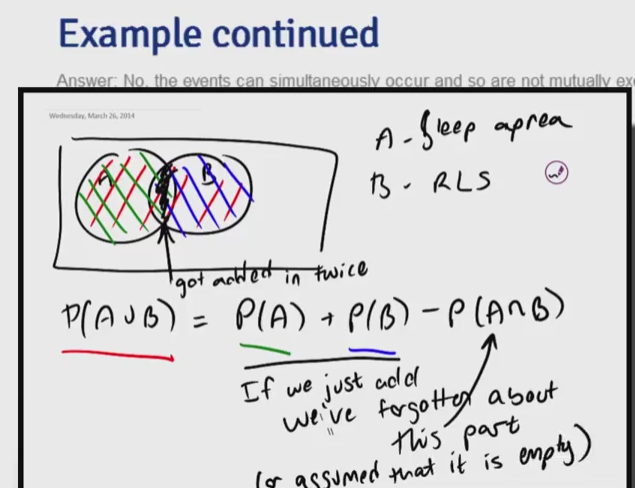 Example continued
Answer: No, the events can simultaneously occur and so are not mutually exc
Wednesday, March 26, 2014
A - Sleep apnea
B - RLS
A
B
got added in twice
P(A∪B) = P(A) + P(B) - P(A∩B)
If we just add
we've forgotten about
this part
(or assumed that it is empty)